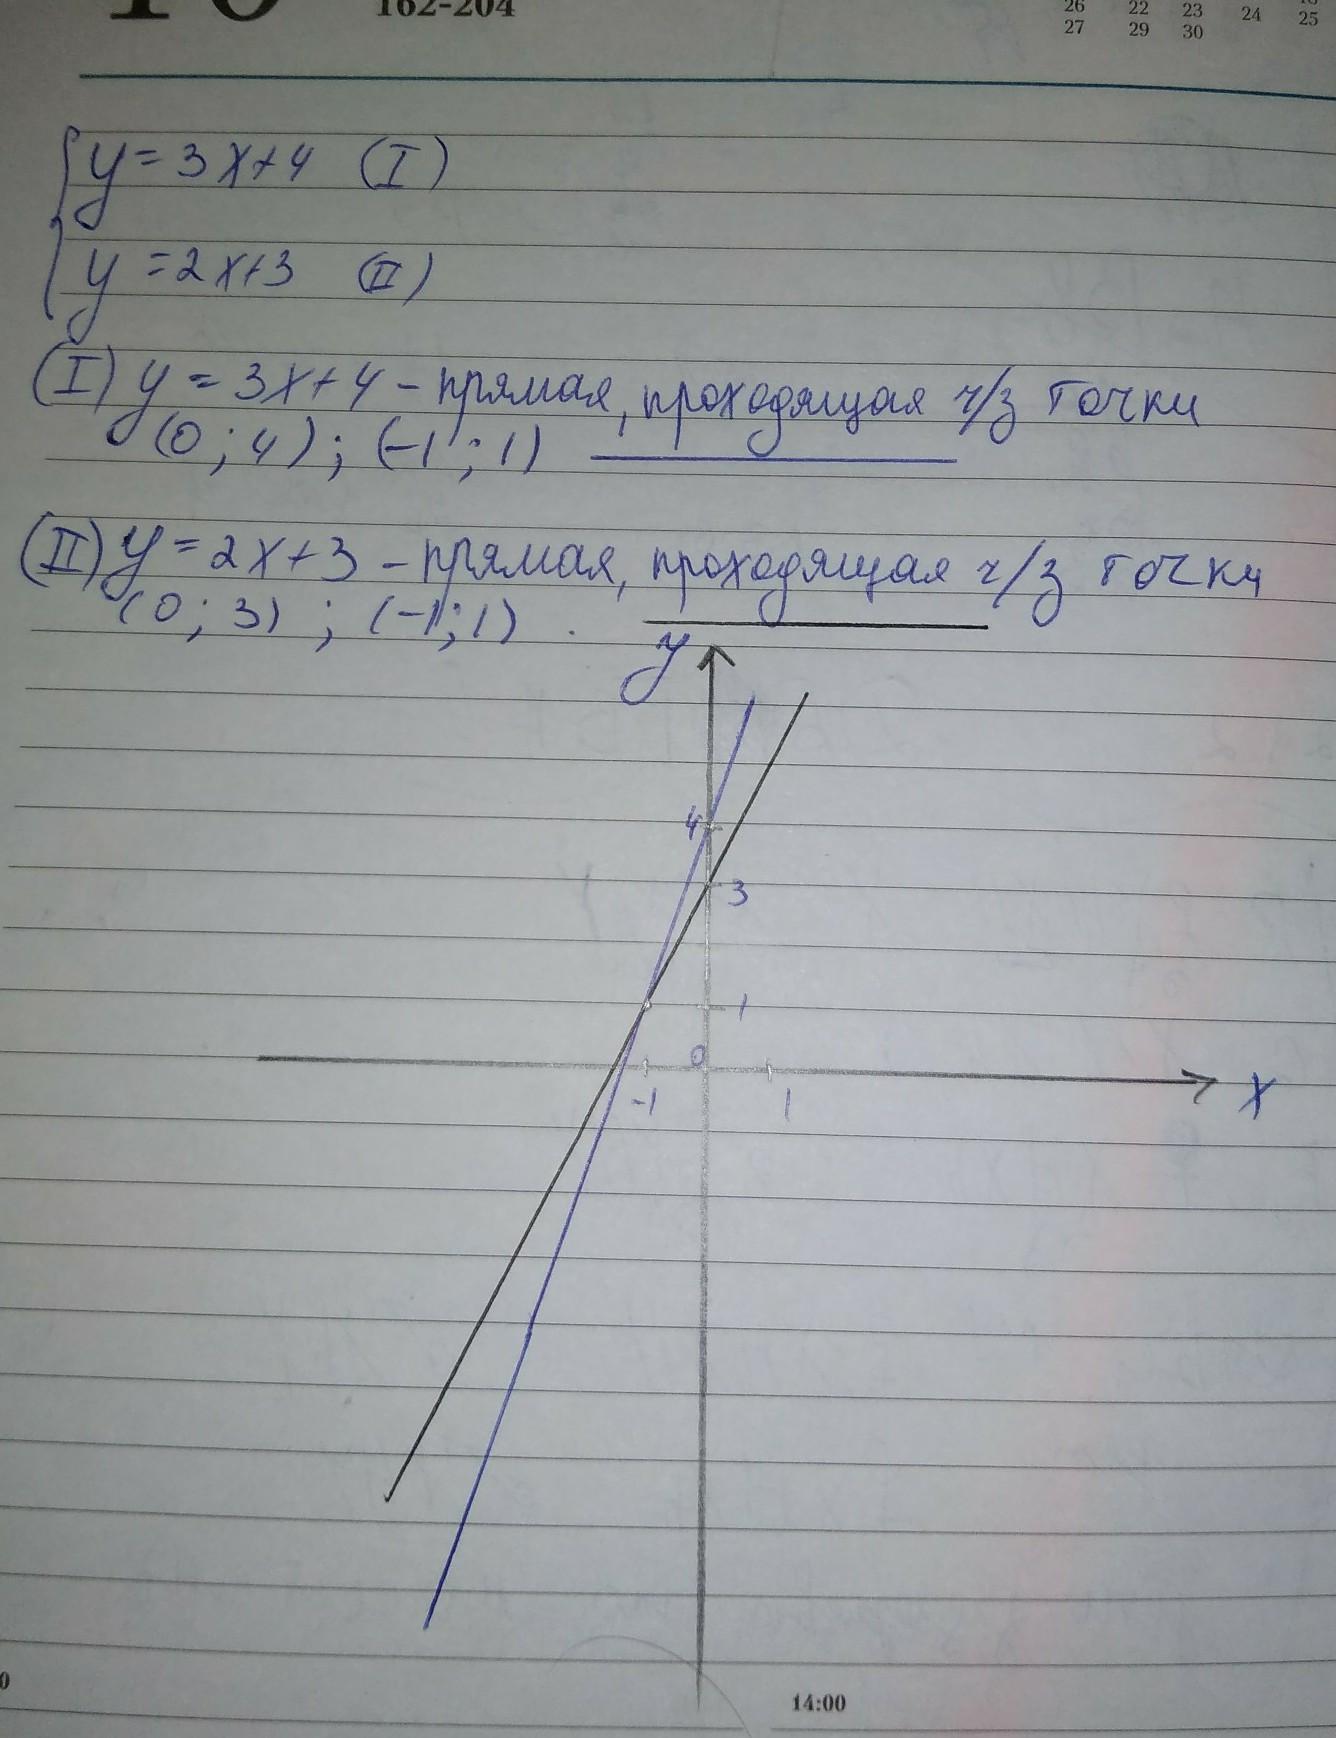 162-204
26 22 23 24 25
27 29 30
y = 3x+4 (I)
y = 2x+3 (II)
(I) y = 3x+4 – прямая, проходящая ч/з точки
(0; 4); (-1; 1)
(II) y = 2x+3 – прямая, проходящая ч/з точки
(0; 3) ; (-1; 1) .
y
4
3
1
0
-1 1 x
14:00